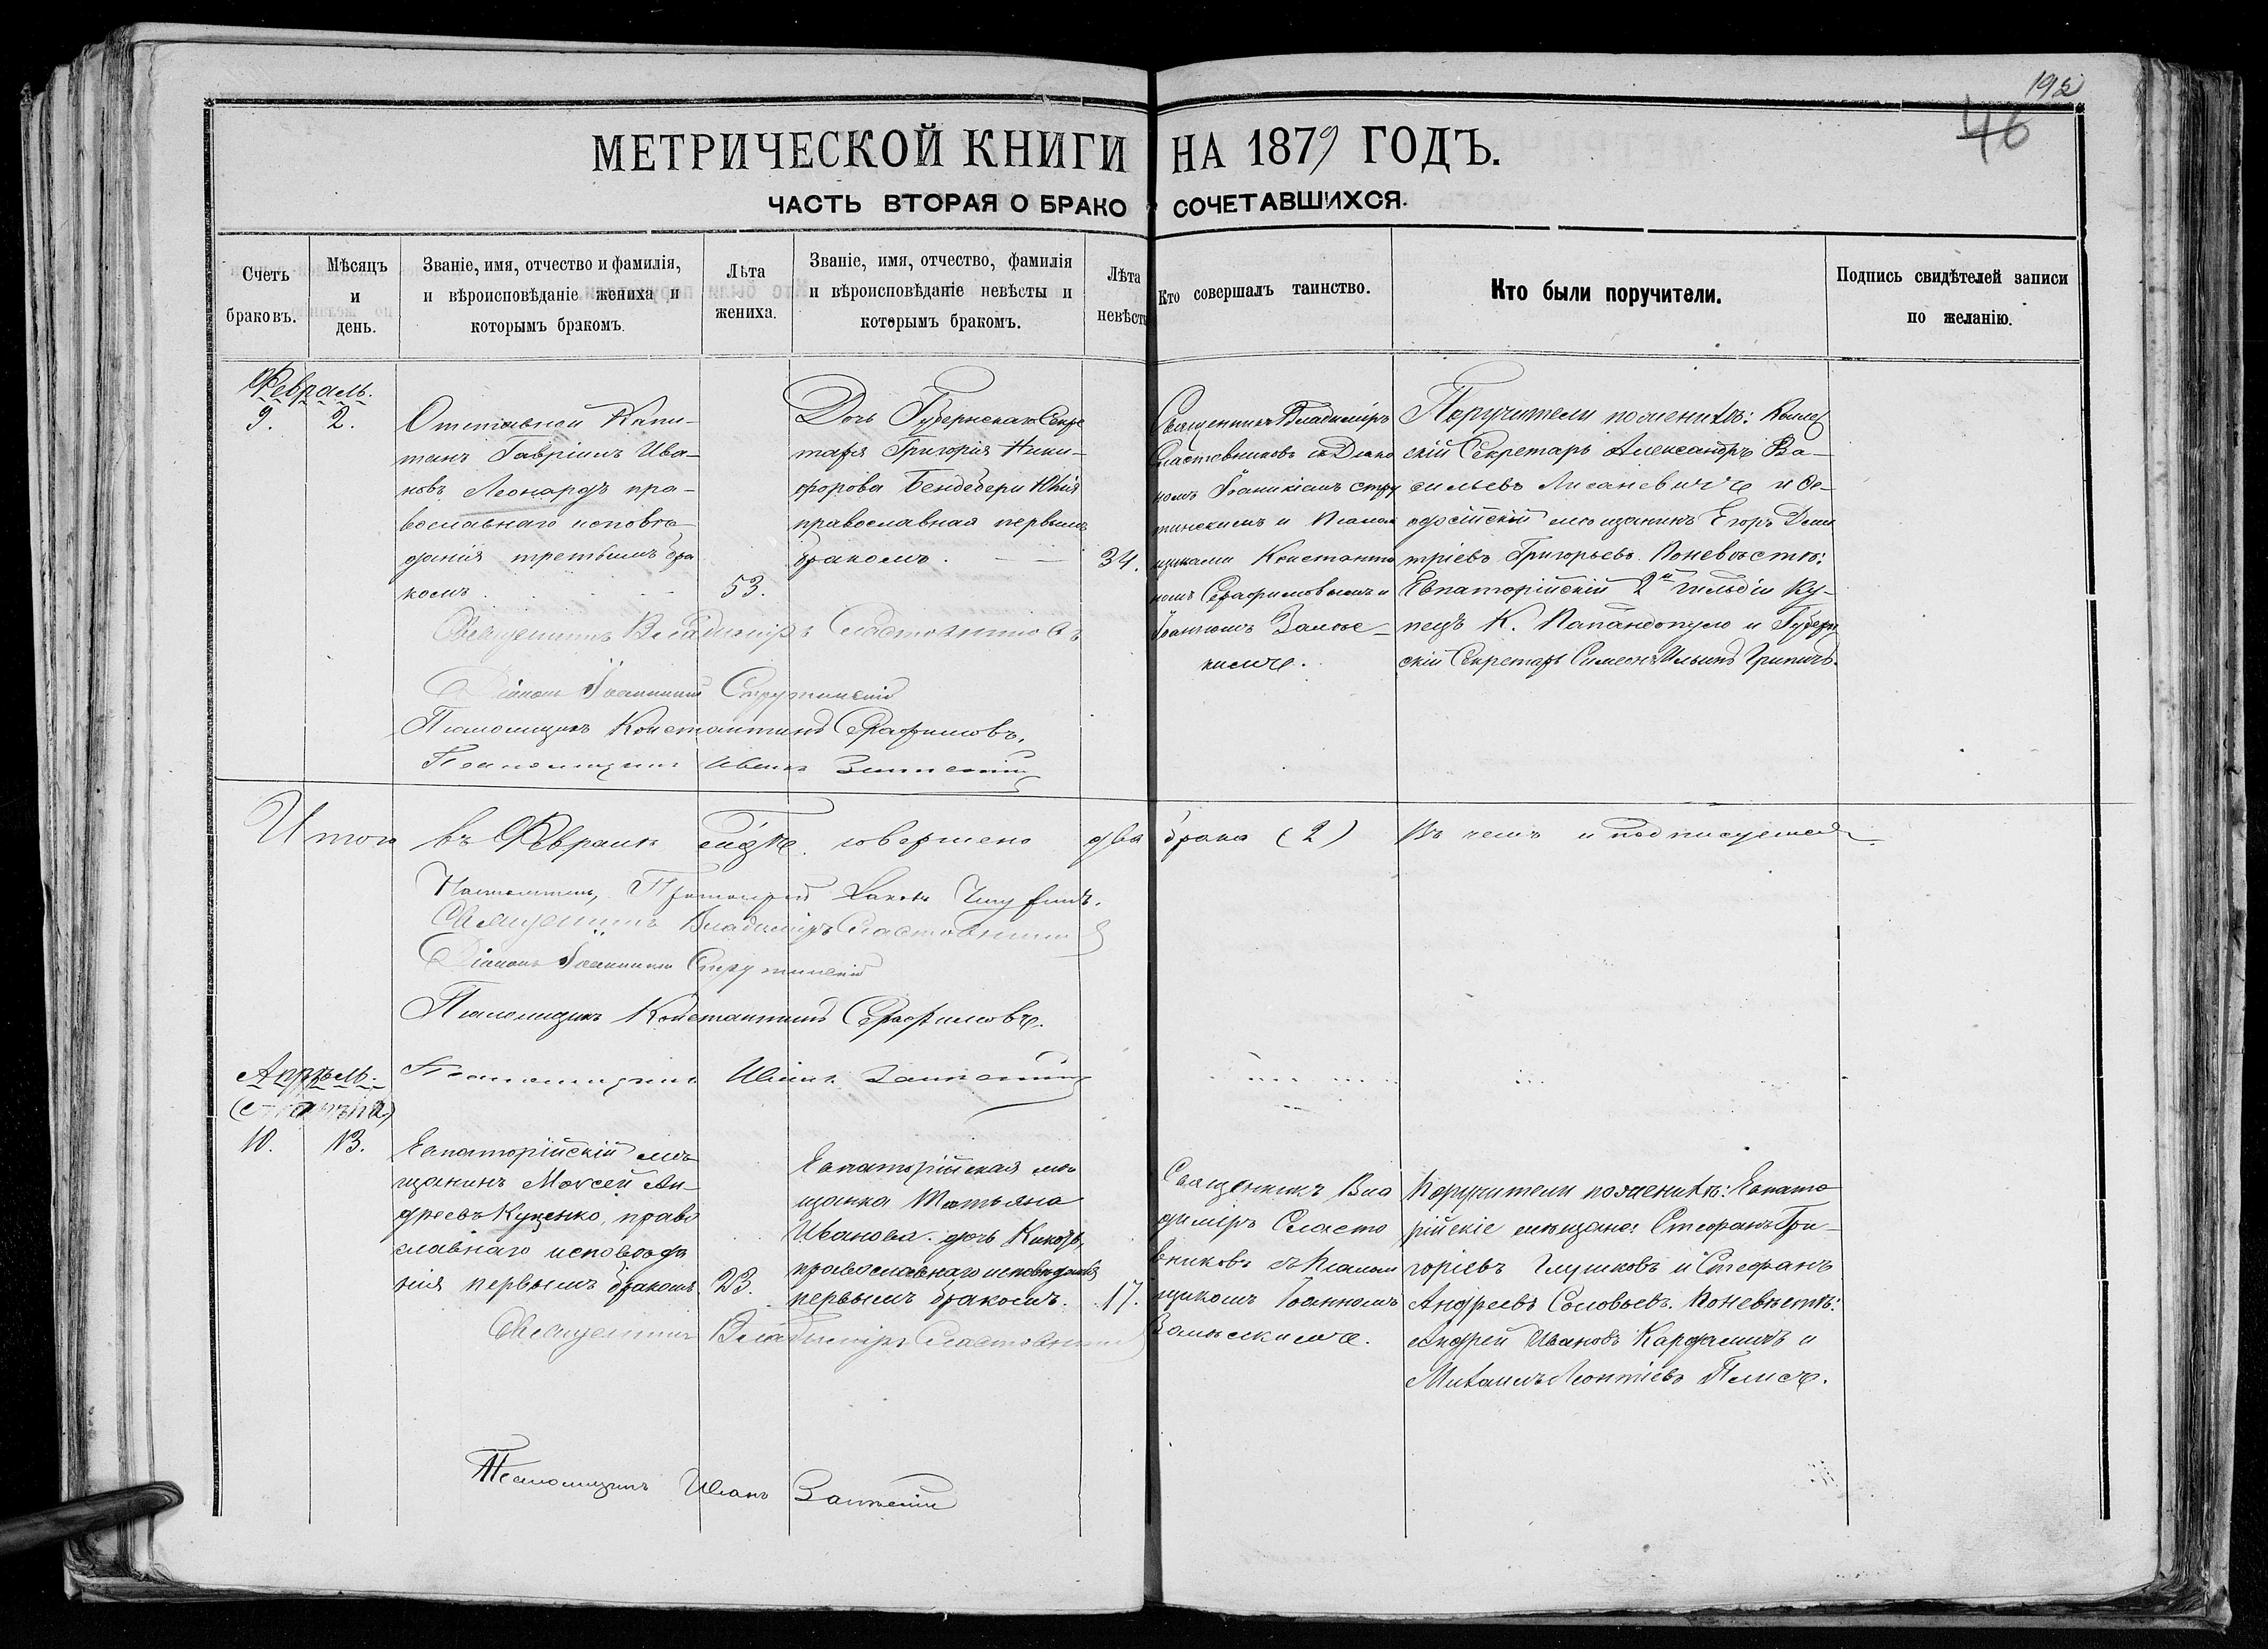 192
46
МЕТРИЧЕСКОЙ КНИГИ НА 1879 ГОДЪ.
ЧАСТЬ ВТОРАЯ О БРАКОСОЧЕТАВШИХСЯ.
Счетъ браковъ.
Мѣсяцъ и день.
Званіе, имя, отчество и фамилія,
и вѣроисповѣданіе жениха и
которымъ бракомъ.
Лѣта
жениха.
Званіе, имя, отчество, фамилія
и вѣроисповѣданіе невѣсты и
которымъ бракомъ.
Лѣта
невѣсты
Кто совершалъ таинство.
Кто были поручители.
Подпись свидѣтелей записи
по желанію.
Февраль.
9. 2.
Отставной Капи-
танъ Гавріилъ Ива-
новъ Леонардъ пра-
вославнаго исповѣ-
данія третьимъ бра
комъ
53.
Дочь Губернскаго Секре
таря Григорія Ники-
форова Бендебери Юлія
православная первымъ
бракомъ.
34.
Священникъ Владиміръ
Сластовниковъ съ Діако
номъ Іоанникіемъ Стру
тинскимъ и Псалом
щиками Константи
номъ Серафимовымъ и
Іоанномъ
Поручители по женихѣ:
скій Секретарь Александръ Ва-
сильевъ Лисаневичъ и Ѳе-
одосійскій мѣщанинъ Егоръ Дми
тріевъ Григорьевъ. По невѣстѣ:
Евпаторійскій 2й гильдіи Ку-
пецъ К. Папандопуло и Губерн
скій Секретарь Симеонъ Ильинъ
Священникъ Владиміръ Сластовниковъ
Діаконъ Іоанникій Струтинскій
Псаломщикъ Константинъ Серафимовъ.
Псаломщикъ Иванъ
Итого въ Февралѣ м-цѣ совершено два брака (2) въ чемъ и подписуемся
Протоіерей
Священникъ Владиміръ Сластовниковъ
Діаконъ Іоанникій Струтинскій
Псаломщикъ Константинъ Серафимовъ.
Псаломщикъ Иванъ
Апрѣль.
10. 13.
Евпаторійскій мѣ-
щанинъ Моисей Ан-
дреевъ Куценко, право
славнаго исповѣда
нія первымъ бракомъ
23.
Евпаторійская мѣ
щанка Татьяна
Иванова дочь
православнаго исповѣданія
первымъ бракомъ.
17.
Священникъ Вла
диміръ Сласто
вниковъ съ Псалом
щикомъ Іоанномъ
Поручители по женихѣ: Евпато
рійскіе мѣщане: Стефанъ Гри-
горіевъ Глушковъ и Стефанъ
Андреевъ Соловьевъ. По невѣстѣ:
Андрей Ивановъ и
Михаилъ Леонтіевъ
Священникъ Владиміръ Сластовниковъ
Псаломщикъ Иванъ